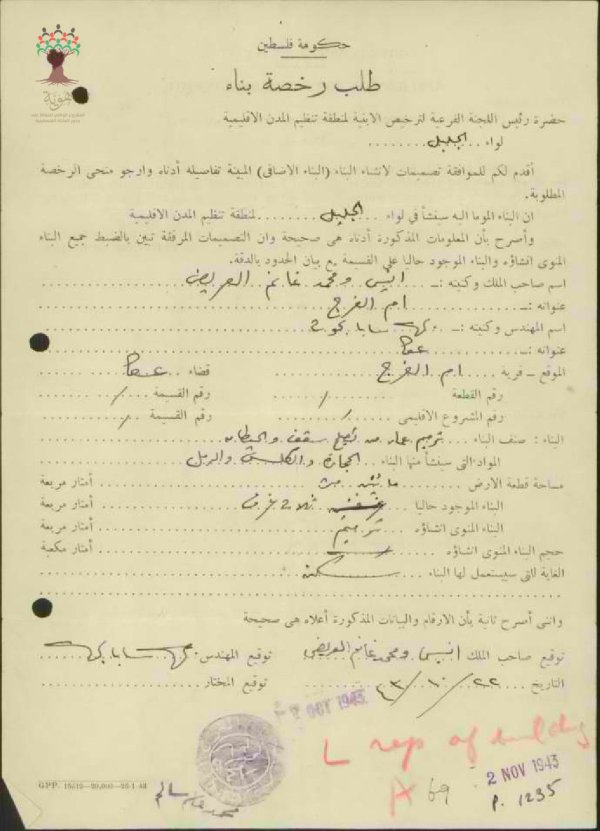 حكومة فلسطين
طلب رخصة بناء
هوية
حضرة رئيس اللجنة الفرعية لترخيص الابنية لمنطقة تنظيم المدن الاقليمية
لواء الجليل
أقدم لكم للموافقة تصميمات لانشاء البناء (البناء الاضافى) المبينة تفاصيله أدناه وارجو منحى الرخصة
المطلوبة.
ان البناء الموما اليه سينشأ في لواء الجليل لمنطقة تنظيم المدن الاقليمية
وأصرح بأن المعلومات المذكورة أدناه هى صحيحة وان التصميمات المرفقة تبين بالضبط جميع البناء
المنوى انشاؤه والبناء الموجود حاليا على القسيمة مع بيان الحدود بالدقة.
اسم صاحب الملك وكنيته :ــ انيس ومحمد غانم العريض
عنوانه :ــ ام الفرج
اسم المهندس وكنيته :ــ سابا
عنوانه :ــ عكا
الموقع ــ قرية ام الفرج قضاء عكا
رقم القطعة / رقم القسيمة /
رقم المشروع الاقليمى / رقم القسيمة /
البناء : صنف البناء ترميم سقف
المواد التى سينشأ منها البناء الحجارة والكلس والرمل
مساحة قطعة الارض أمتار مربعة
البناء الموجود حاليا ثلاث غرف أمتار مربعة
البناء المنوى انشاؤه ترميم أمتار مربعة
حجم البناء المنوى انشاؤه أمتار مكعبة
الغاية التى سيستعمل لها البناء سكنه
وانى أصرح ثانية بأن الارقام والبيانات المذكورة أعلاه هى صحيحة
توقيع صاحب الملك انيس ومحمد غانم العريض توقيع المهندس سابا
التاريخ ٢٢/١٠/٤٣ توقيع المختار
2 OCT 1943
L rep of building
A 69
2 NOV 1943
P. 1235
G.P.P. 15519—20,000—25-1-43